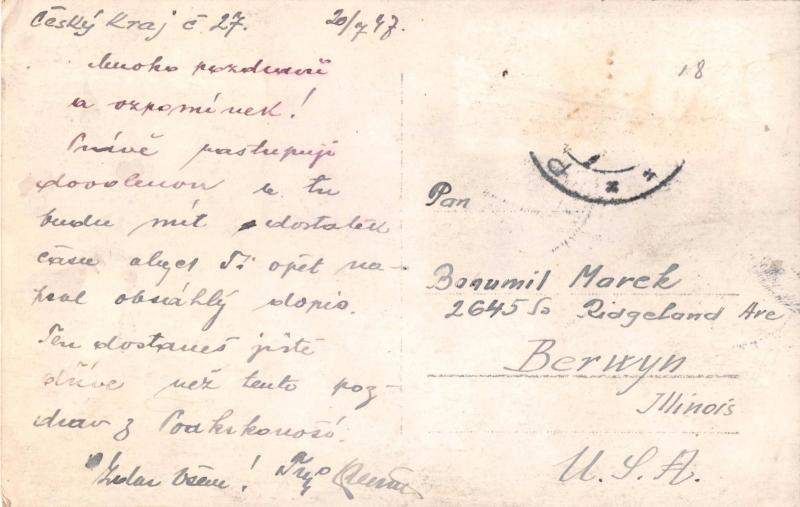 Český Kraj č 27. 20/7 47.
Mnoho pozdravů
a vzpomínek!
Právě nastupuji
dovolenou a tu
budu mít dostatek
času abych Ti opět na-
psal obsáhlý dopis.
Ten dostaneš jistě
dříve než tento poz-
drav z Podkrkonoší.
Zdar Všem!
18
Pan
Bohumil Marek
2645 So Ridgeland Ave
Berwyn
Illinois
U.S.A.